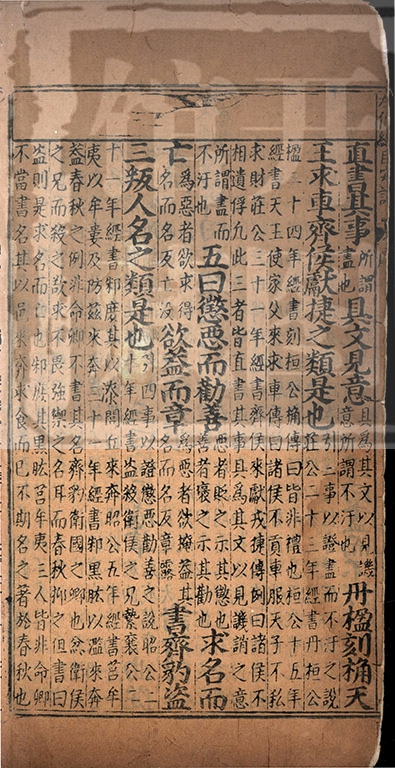 直書其事所謂盡也具文見意具為其文以見譏意所謂不汙也丹楹刻桷天
王求車齊侯獻捷之類是也引三事以證盡而不汙之說莊公二十三年經書丹桓公
楹二十四年經書刻桓公桷傳曰皆非禮也桓公十五年
經書天王使家父來求車傳曰諸侯不貢車服天子不私
求財莊公三十一年經書齊侯來獻戎捷傳例曰諸侯不
相遺俘凡此三者皆直書其事具為其文以見譏誚之意
所謂盡而不汙也五曰懲惡而勸善惡者貶之示其懲也善者褒之示其勸也求名而
亡為惡者欲求得名而名反亡沒欲蓋而章為惡者欲掩蓋其名而名反章露書齊豹盜
三叛人名之類是也引四事以證懲惡勸善之說昭公二十年經書盜殺衛侯之兄縶襄公二
十一年經書邾庶其以漆閭丘來奔昭公五年經書莒牟
夷以牟婁及防茲來奔三十一年經書邾黑肱以濫來奔
蓋春秋之例非命卿不書其名齊豹衛國之卿也忿衛侯
之兄而殺之欲求不畏強禦之名耳而春秋抑之但書曰
盜則是求名而亡也邾庶其黑肱莒牟夷三人皆非命卿
不當書名其以邑來奔求食而已不期名之著於春秋也